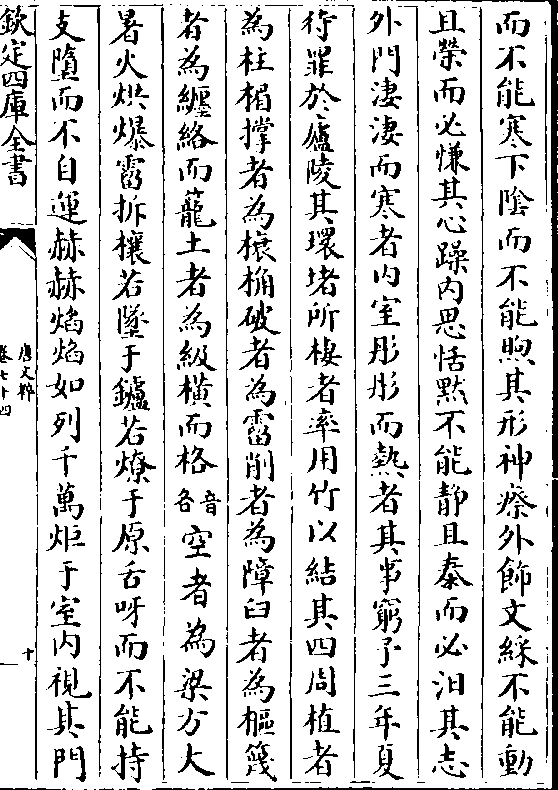 而不能寒下陰而不能煦其形神瘵外飾文綵不能動
且榮而必慊其心躁内思恬黙不能靜且泰而必汨其志
外門淒淒而寒者内室彤彤而熱者其事窮予三年夏
待罪於廬陵其環堵所棲者率用竹以結其四周植者
為柱楣撑者為榱桷破者為霤削者為障臼者為樞篾
者為纒絡而籠土者為級横而格音各空者為梁方大
暑火烘爆霤拆欀若墜于鑪若燎于原舌呀而不能持
支墮而不自運赫赫焰焰如列千萬炬于室内視其門
欽定四庫全書
唐文粹
卷七十四
十